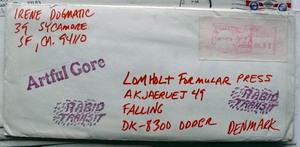 IRENE DOGMATIC
39 SYCAMORE
SF, CA. 94110
Artful Gore
LOMHOLT FORMULAR PRESS
AKJAERVEJ 49
FALLING
DK-8300 ODDER
DENMARK
RABID
TRANSIT
RABID
TRANSIT